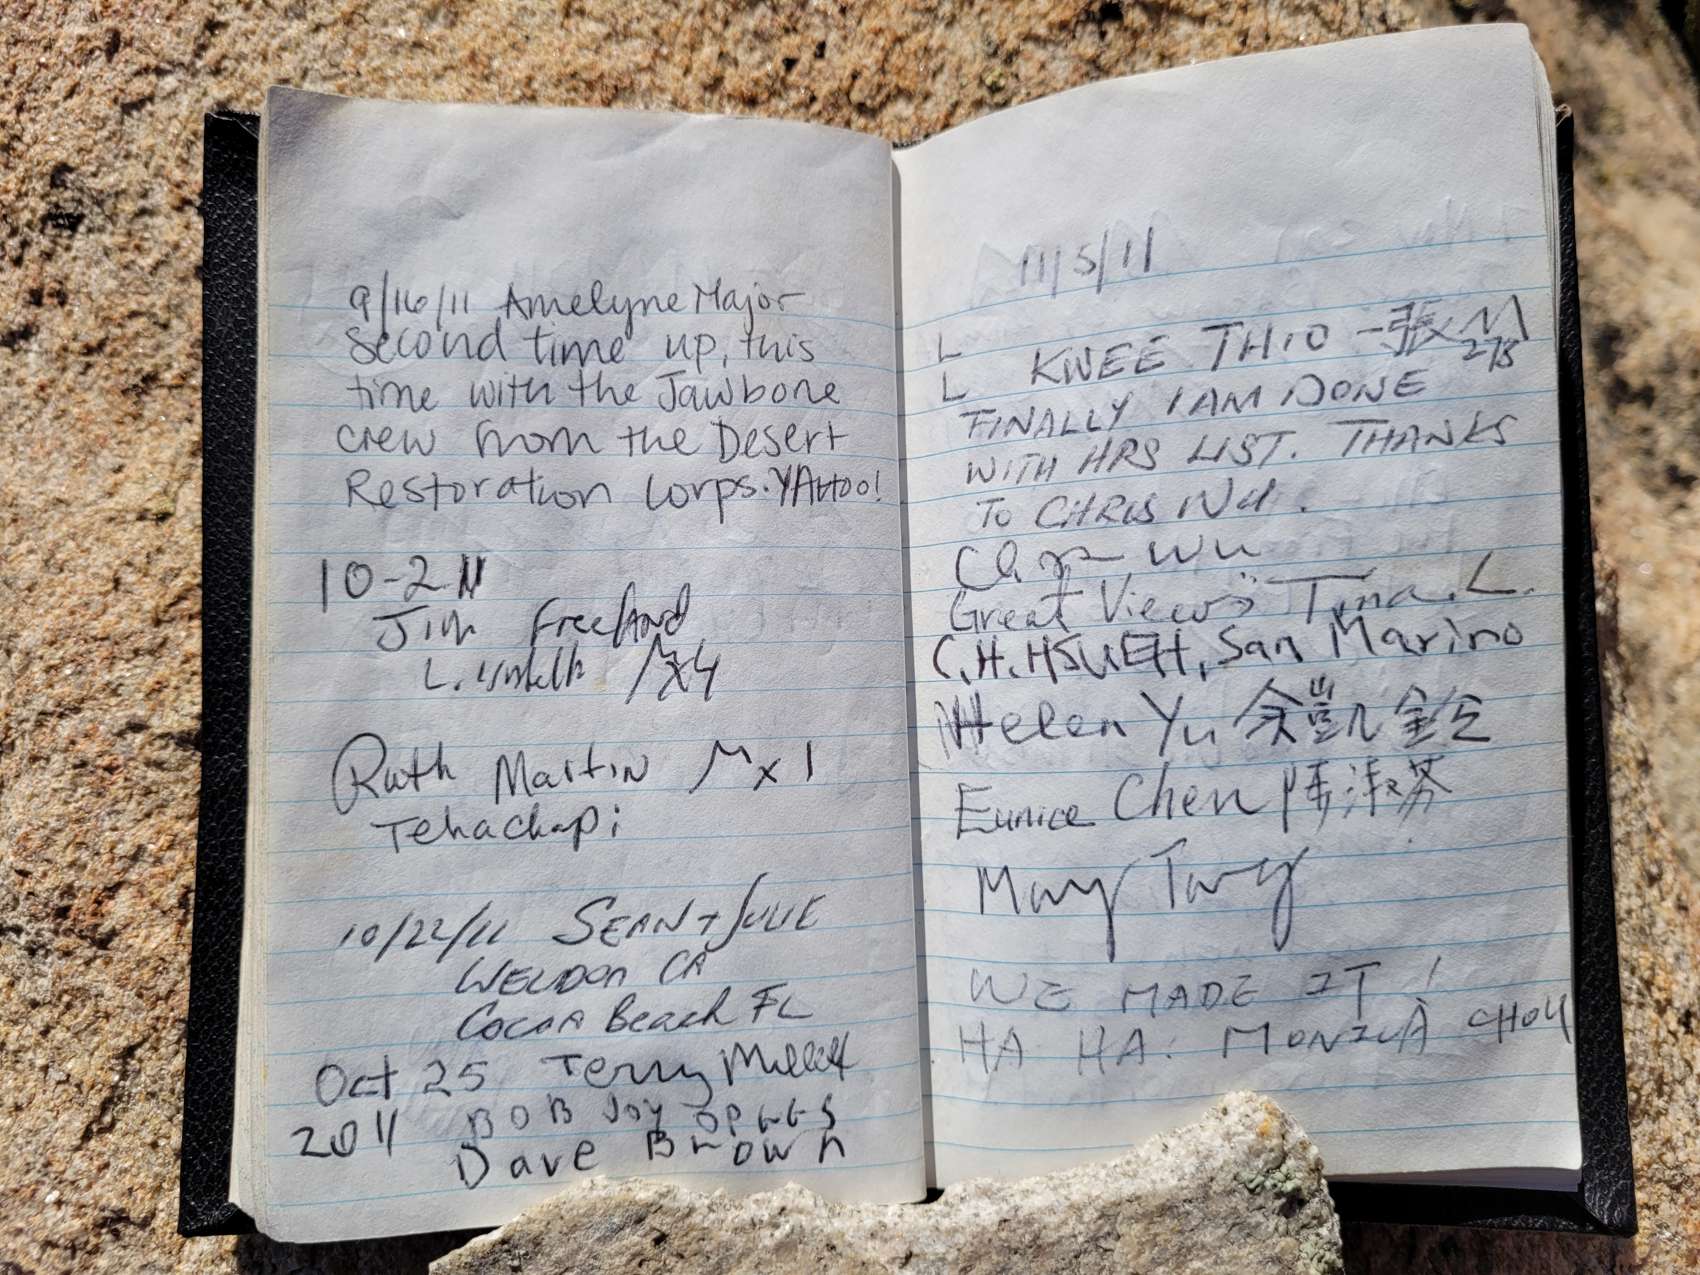 9/16/11 Amelyne Major
Second time up, this
time with the Jawbone
crew from the Desert
Restoration Corps. YAHOO!
10-2 11
Jim Freeland
L. Mx4
Ruth Martin Mx1
Tehachapi
10/22/11 SEAN + JULIE
WELDON CA
COCOA Beach FL
Oct 25 Terry
2011 BOB Joy
Dave Brown
11/5/11
L KWEE THIO - 張 M
278
L
FINALLY I AM DONE
WITH HPS LIST. THANKS
TO CHRIS WU.
Wu
Great Views Tina. L.
C.H. HSUEH, San Marino
Helen Yu 余凱
Eunice Chen 陳淑芬
WE MADE IT!
HA HA. MONICA CHOU